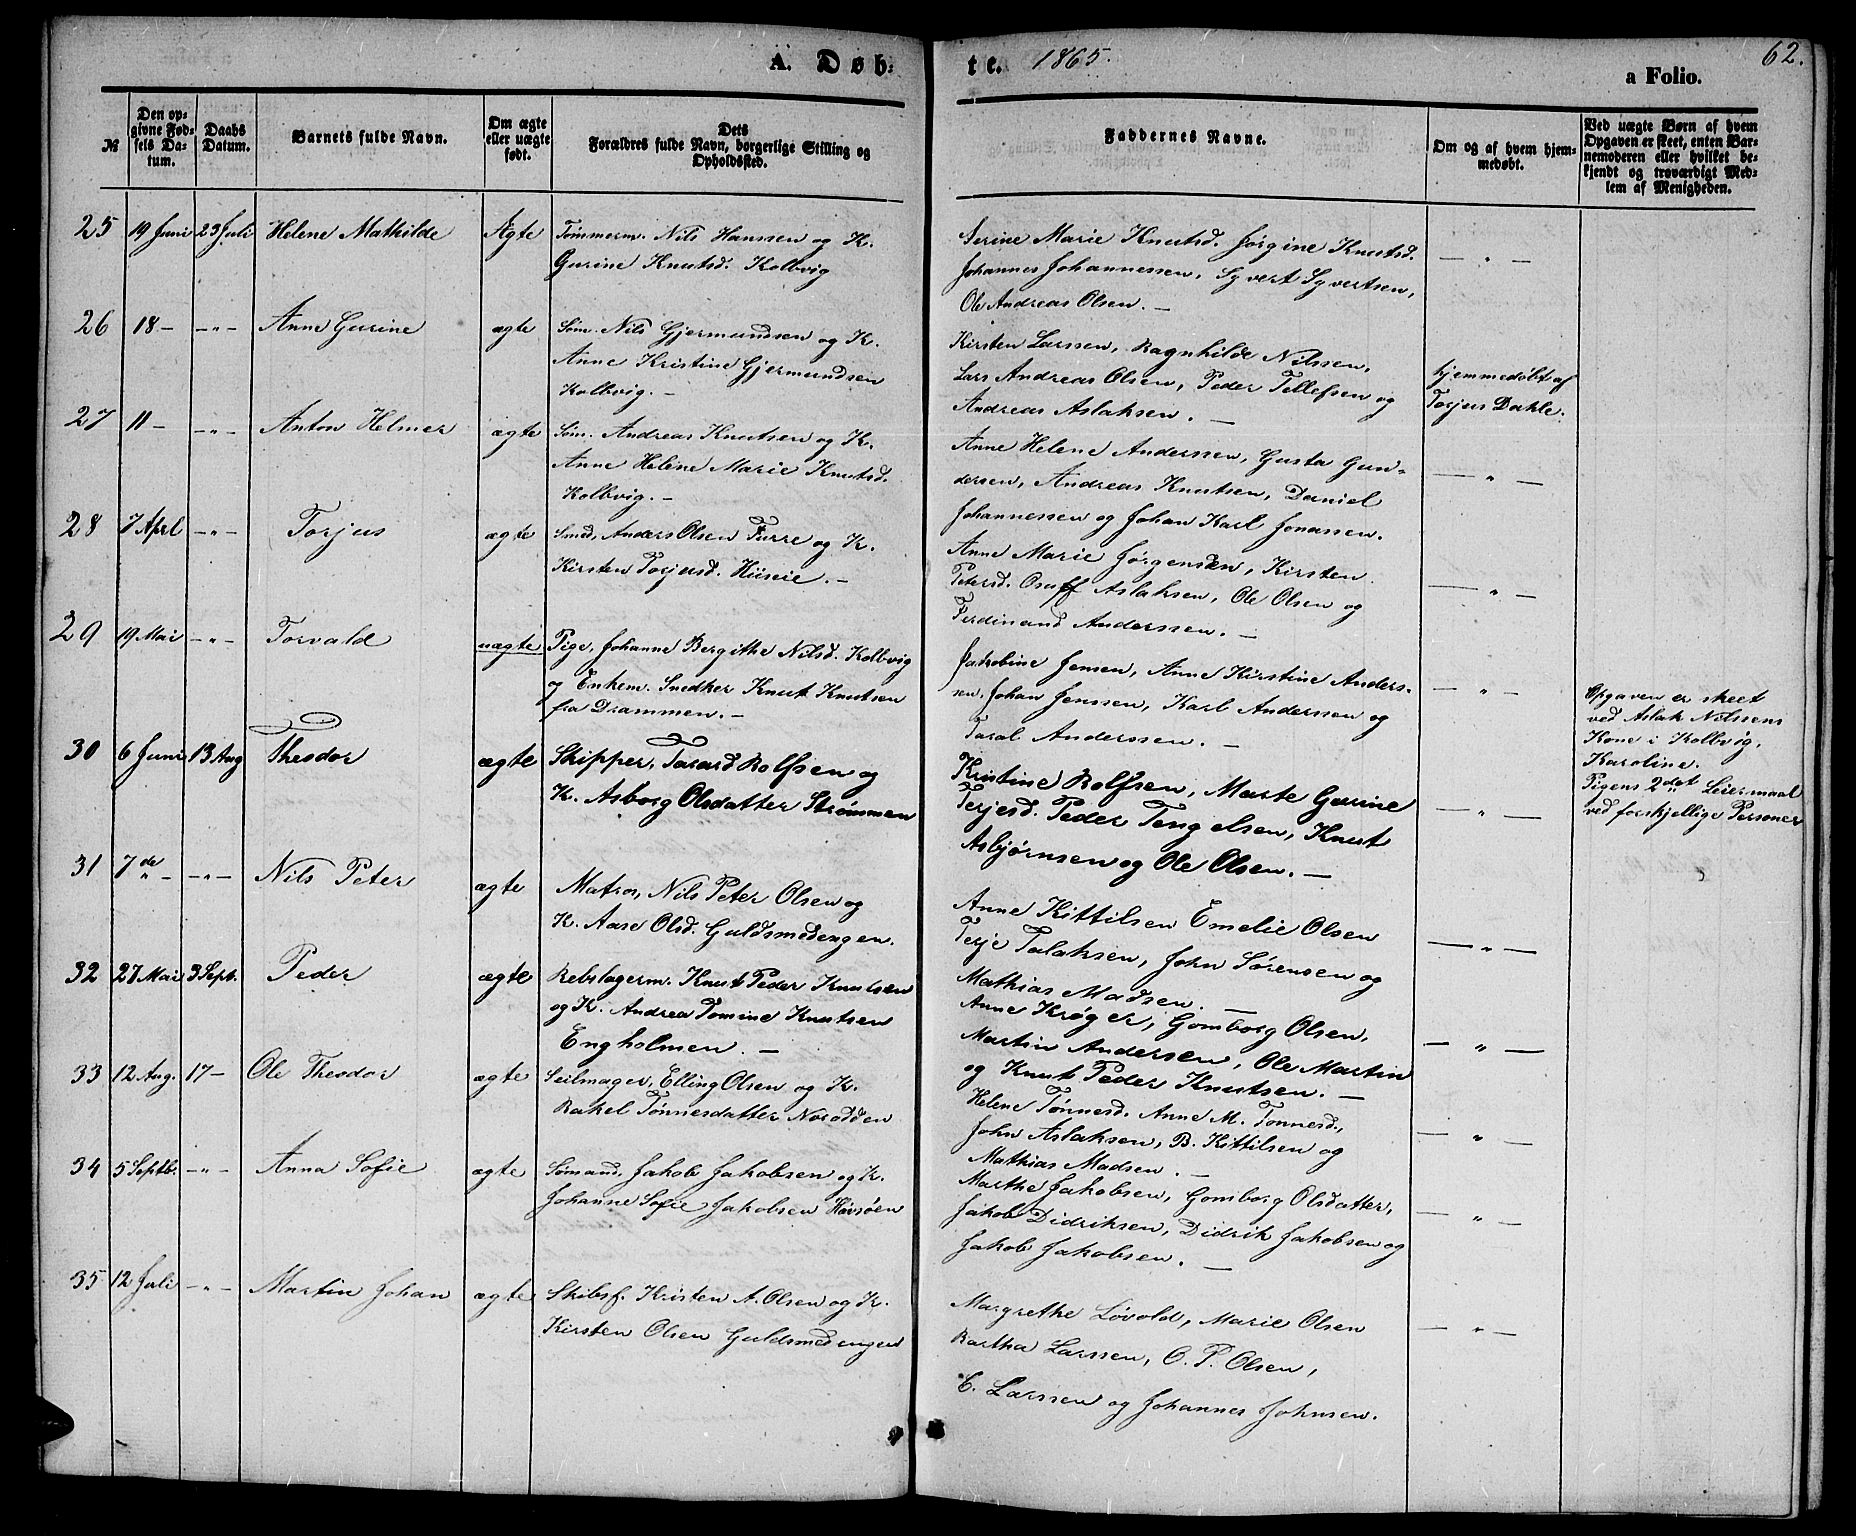 A. Døb-
te. 1865.
62.
a Folio.
№
Den op-
givne Fød-
sels Da-
tum.
Daabs
Datum.
Barnets fulde Navn.
Om ægte
eller uægte
født.
Dets
Forældres fulde Navn, borgerlige Stilling og
Opholdssted.
Faddernes Navne.
Om og af hvem hjem-
medøbt.
Ved uægte Børn af hvem
Opgaven er skeet, enten Bar-
nemoderen eller hvilket be-
kjendt og troværdigt Med-
lem af Menigheden.
25 19 Juni 23 Juli Helene Mathilde Ægte Tömmerm. Nils Hanssen og K.
Gurine Knutsd. Kolbvig
Serine Marie Knutsd. Jörgine Knutsd.
Johannes Johannessen, Syvert Syvertsen,
Ole Andreas Olsen. —
— " —
26 18 — — " — Anne Gurine ægte Söm. Nils Gjermundsen og K.
Anne Kristine Gjermundsen
Kolbvig. —
Kirsten Larssen, Ragnhilde Nilssen,
Lars Andreas Olsen, Peder Tellefsen og
Andreas Aslaksen. —
hjemmedöbt af
Torjus Dahle.
27 11 — — " — Anton Helmer ægte Söm. Andreas Knutsen og K.
Anne Helene Marie Knutsd.
Kolbvig. —
Anne Helene Anderssen, Gusta Gun-
dersen, Andreas Knutsen, Daniel
Johannessen og Johan Karl Jonassen.
— " —
28 7 Apl — " — Torjus ægte Smed, Anders Olsen Furre og K.
Kirsten Torjusd. Hüseie. —
Anne Marie Jörgensen, Kirsten
Petersd. Osuff Aslaksen, Ole Olsen og
Ferdinand Anderssen. —
— " —
29 19 Mai — " — Torvald uægte Pige, Johanne Bergithe Nilsd. Kolbvig
og Enkem. Snedker Knut Knutsen
fra Drammen. —
Jakobine Jensen, Anne Kirstine Anders-
sen, Johan Jenssen, Karl Anderssen og
Taral Anderssen. —
— " —
Opgaven er skeet
ved Aslak Nilssens
Kone i Kolbvig,
Karoline.
Pigens 2det Leiermaal
ved forskjellige Personer
30 6 Juni 13 Aug Theodor ægte Skipper, Tarard Rolfsen og
K. Asborg Olsdatter Strömmen
Kristine Rolfsen, Marte Gurine
Terjesd. Peder Tengelsen, Knut
Asbjörnsen og Ole Olsen. —
— " —
31 7de — — " — Nils Peter ægte Matros, Nils Peter Olsen og
K. Aase Olsd. Guldsmedengen.
Anne Kittilsen Emelie Olsen
Terje Talaksen, John Sörensen og
Mathias Madsen. —
— " —
32 27 Mai 3 Sept. Peder ægte Rebslagerm. Knut Peder Knutsen
og K. Andrea Tomine Knutsen
Engholmen. —
Anne Kröger, Gomborg Olsen,
Martin Andersen, Ole Martin
og Knut Peder Knutsen. —
— " —
33 12 Aug. 17 — Ole Theodor ægte Seilmager, Elling Olsen og K.
Rakel Tönnesdatter Norodden
Helene Tönnesd. Anne M. Tönnesd.,
John Aslaksen, B. Kittilsen og
Mathias Madsen. —
— " —
34 5 Septb. — " — Anna Sofie ægte Sömand, Jakob Jakobsen og K.
Johanne Sofie Jakobsen Havsöen
Marthe Jakobsen, Gomborg Olsdatter,
Jakob Didriksen, Didrik Jakobsen og
Jakob Jakobsen. —
— " —
35 12 Juli — " — Martin Johan ægte Skibsf. Kristen A. Olsen og K.
Kirsten Olsen Guldsmedengen
Margrethe Lövold, Marie Olsen
Bartha Larssen, O. P. Olsen,
E. Larssen og Johannes Johnsen.
— " —